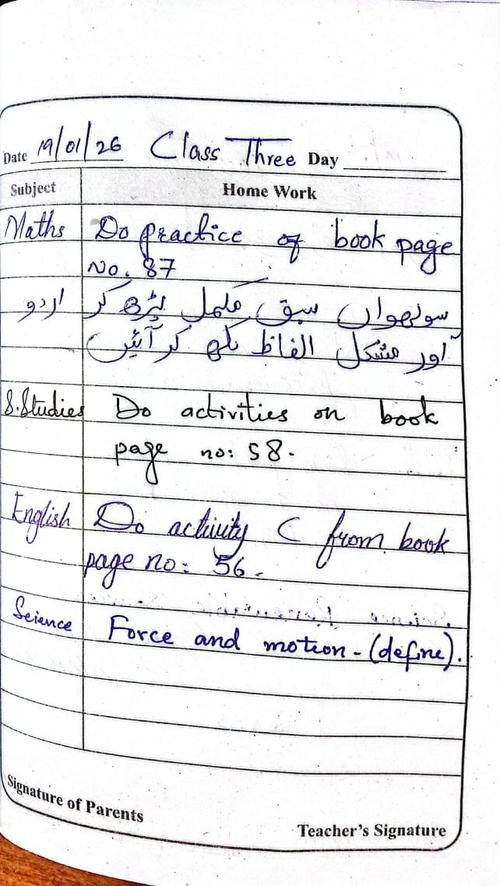 Date 19/01/26 Class Three Day
Subject Home Work
Maths Do practice of book page
No. 87
اردو سولھواں سبق مکمل پڑھ کر
اور مشکل الفاظ لکھ کر آئیں
S.Studies Do activities on book
page no: 58.
English Do activity C from book
page no: 56.
Science Force and motion - (define).
Signature of Parents
Teacher's Signature